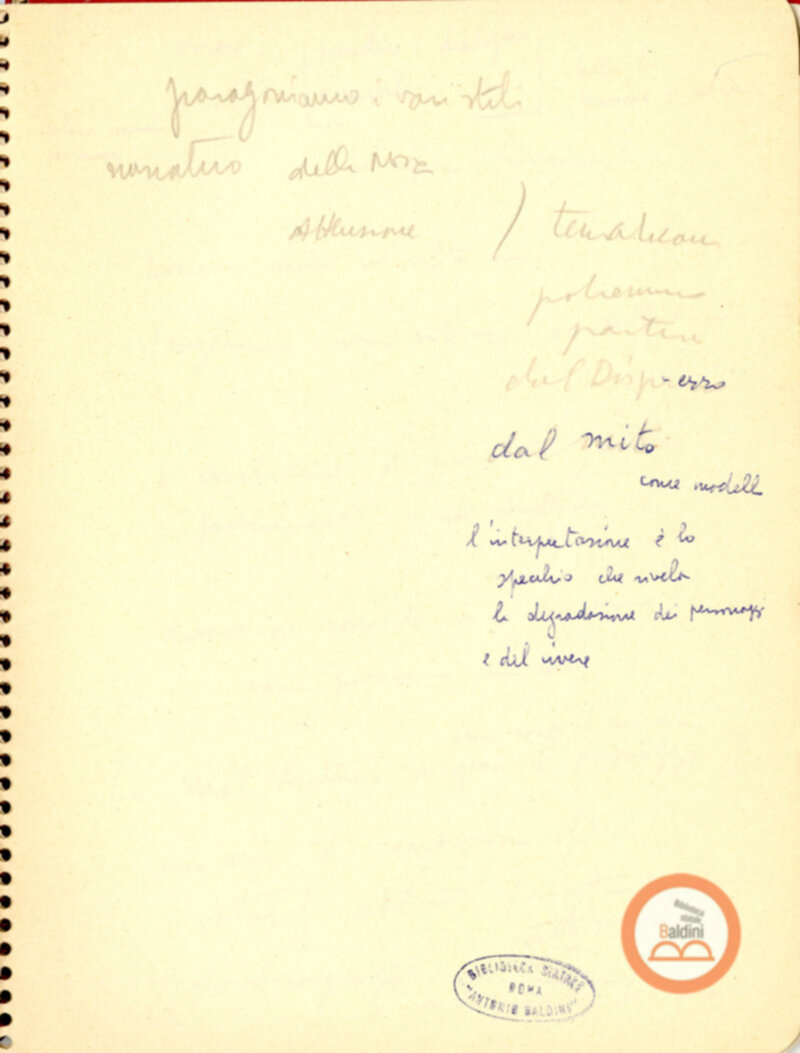 paragoniamo i vari stili
narrativo della Noia
Attenzione ) 
potremmo
partire
dal Disprezzo
dal mito
come modello
l'interpretazione è lo
specchio che rivela
la degradazione dei personaggi
e del vivere
Biblioteca
statale
Baldini
BIBLIOTECA STATALE
ROMA
"ANTONIO BALDINI"